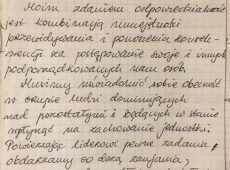 Moim zdaniem odpowiedzialność
jest kombinacją umiejętności
przewidywania i ponoszenia konsek-
wencji za postępowanie swoje i innych
podporządkowanych nam osób.
Musimy uświadomić sobie obecność
w grupie ludzi dominujących
nad pozostałymi i będących w stanie
wpłynąć na zachowanie jednostki.
Powierzając liderowi pewne zadania,
obdarzamy go dozą zaufania,